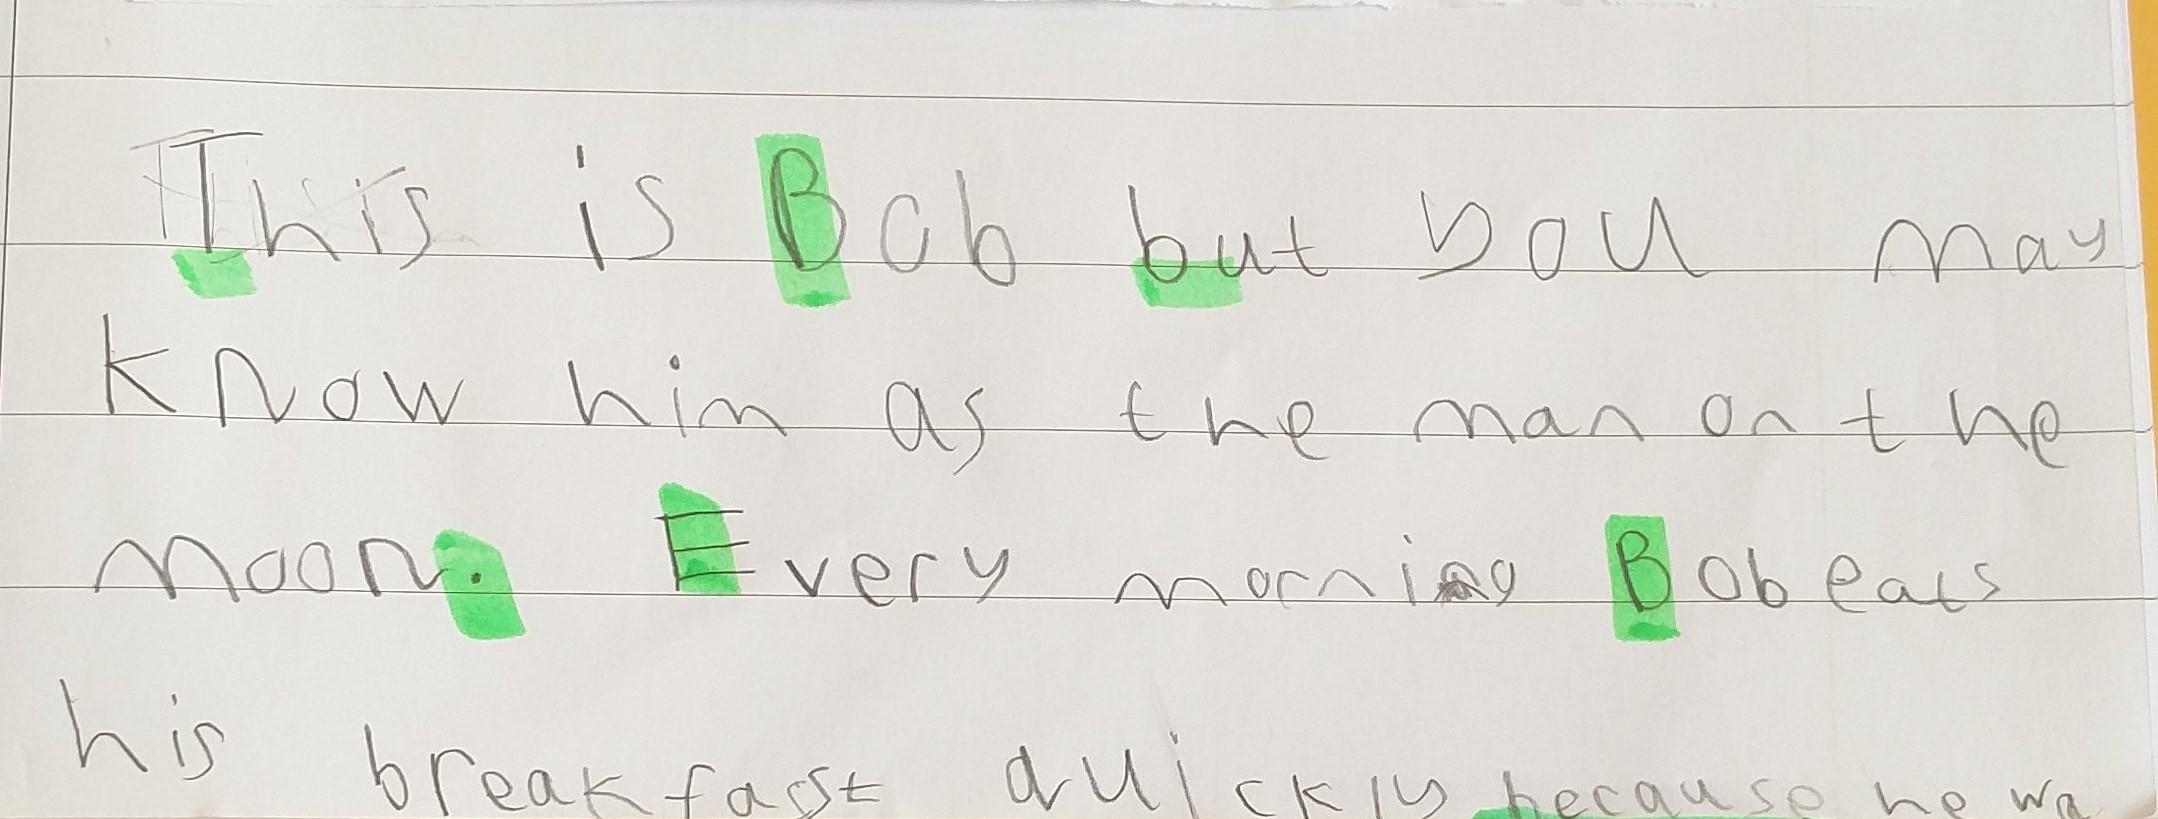 This is Bob but you may
know him as the man on the
moon. Every morning Bob eats
his breakfast quickly because he